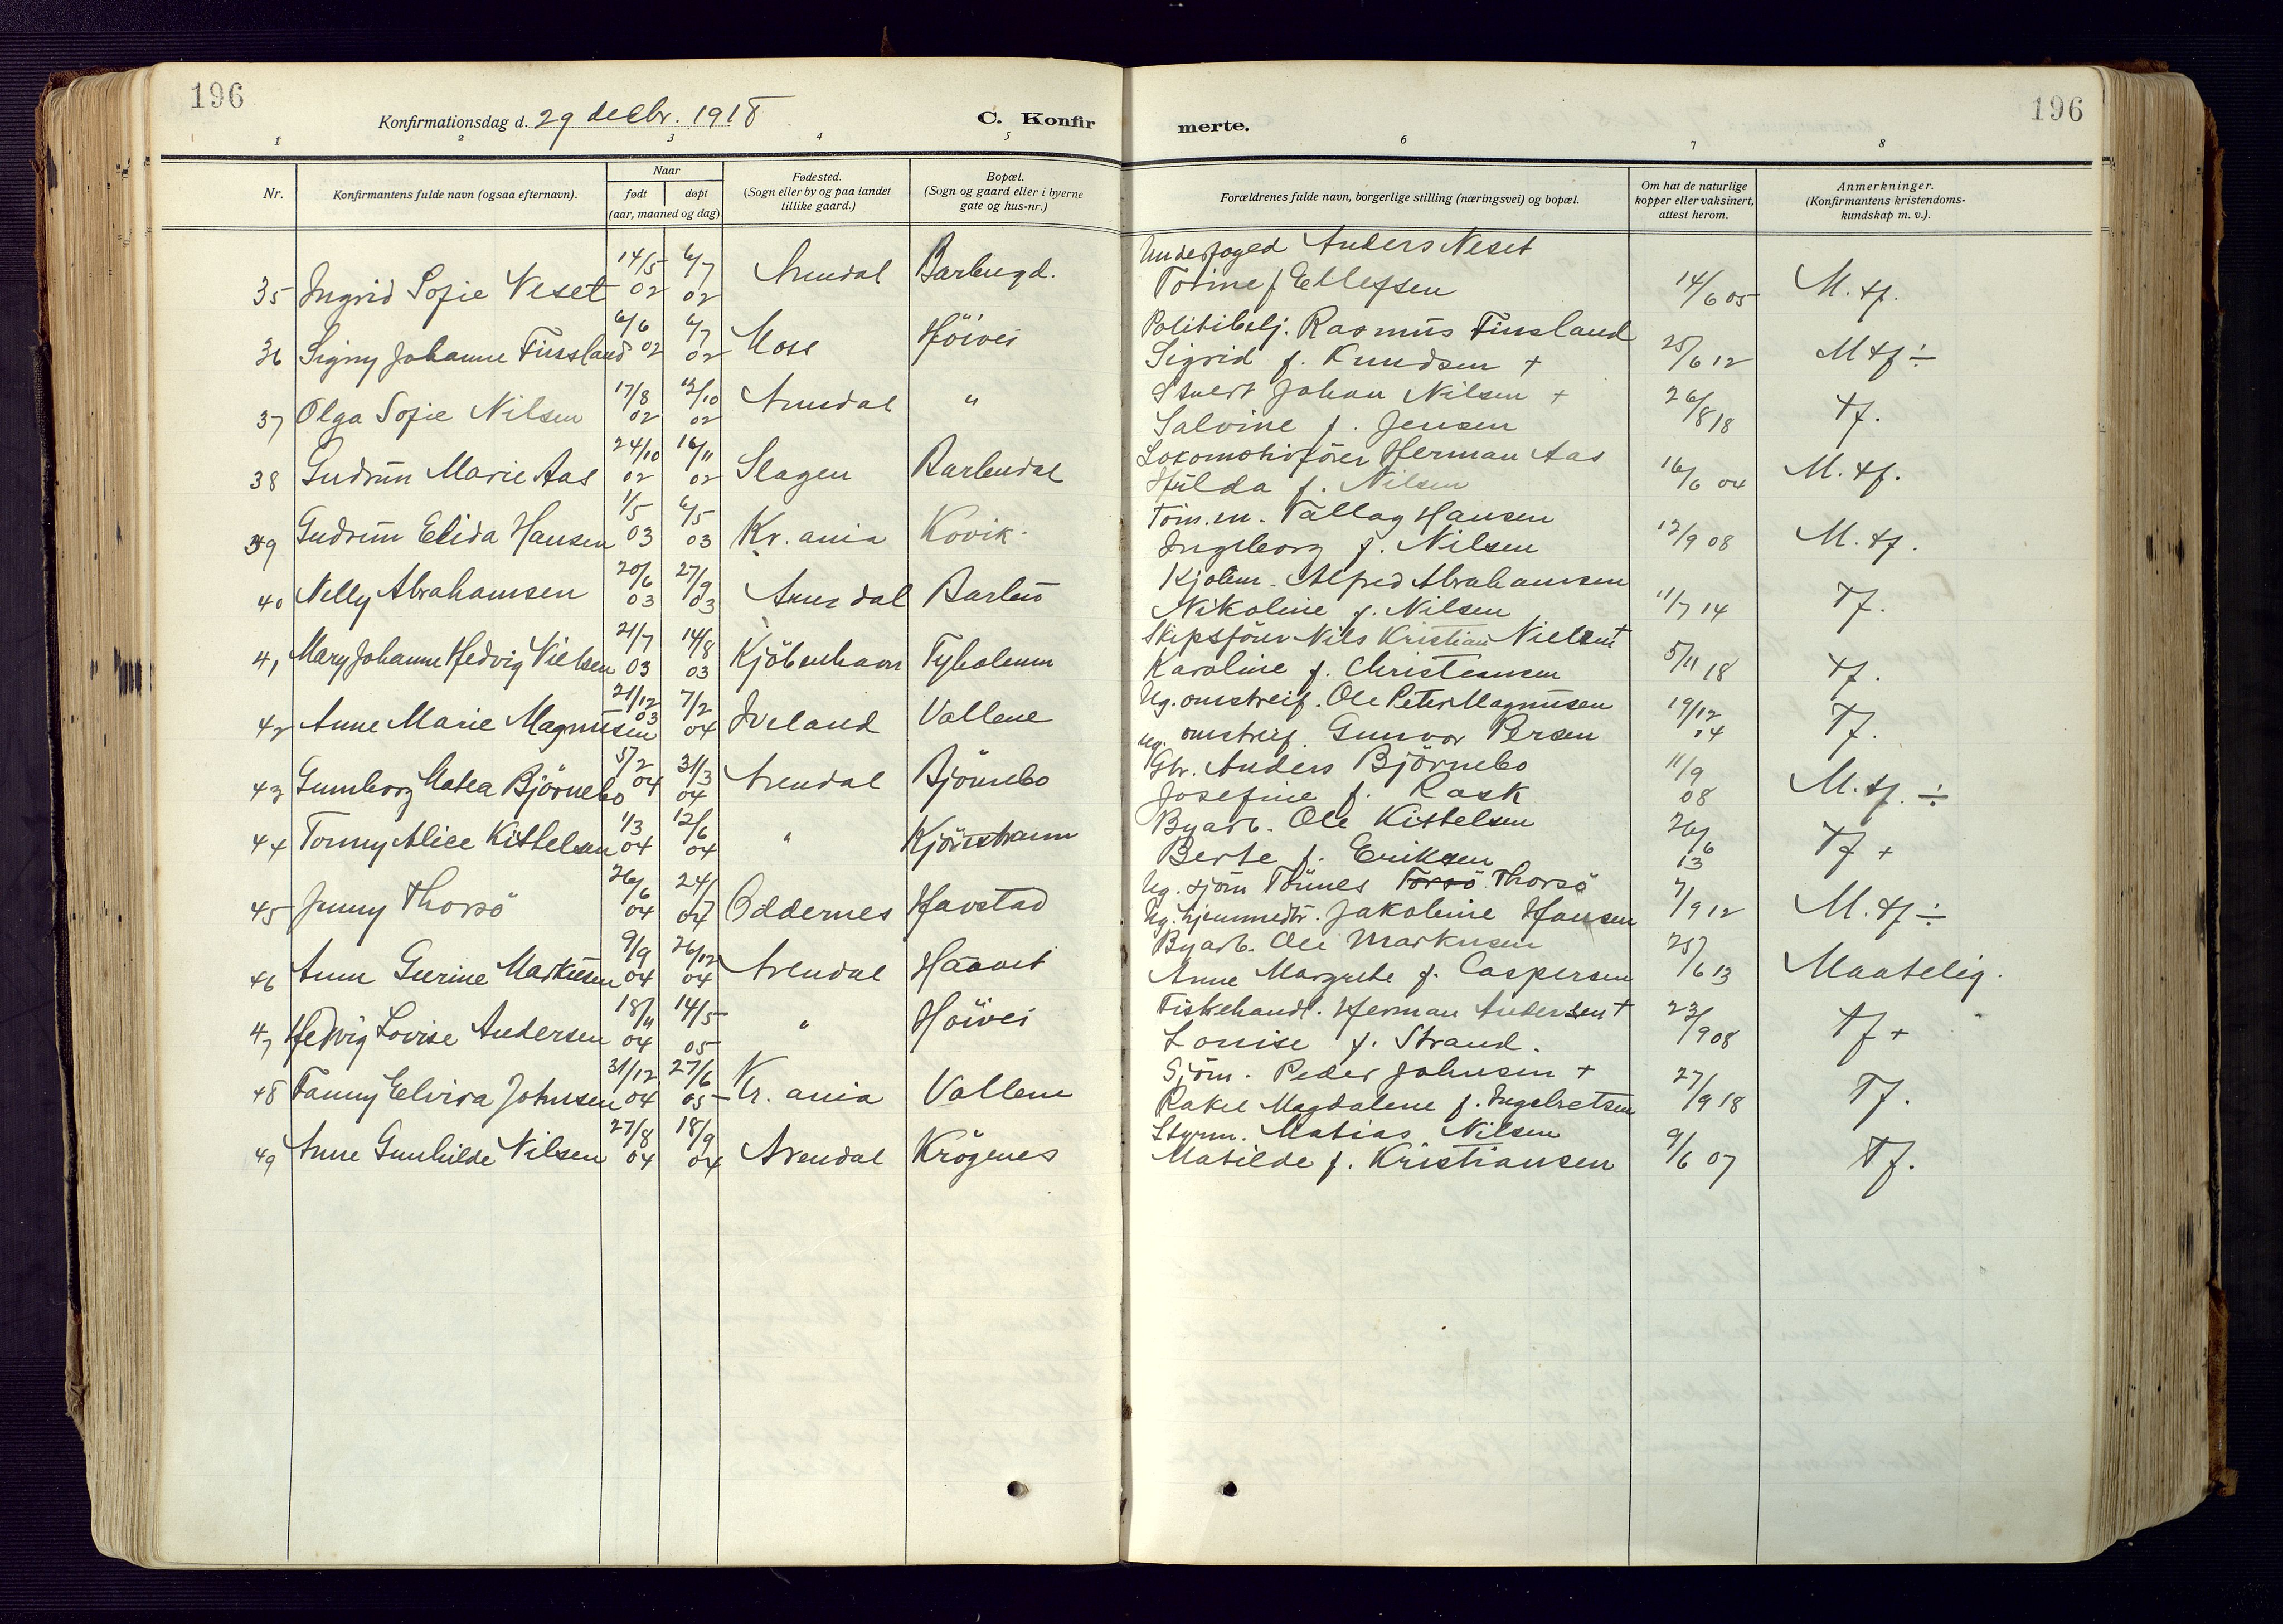 196
196
Konfirmationsdag d. 29 decbr. 1918
C. Konfir
merte.
1 2 3 4 5 6 7 8
Nr.
Konfirmantens fulde navn (ogsaa efternavn).
Naar
født døpt
(aar, maaned og dag)
Fødested.
(Sogn eller by og paa landet
tillike gaard.)
Bopæl.
(Sogn og gaard eller i byerne
gate og hus-nr.)
Forældrenes fulde navn, borgerlige stilling (næringsvei) og bopæl.
Om hat de naturlige
kopper eller vaksinert,
attest herom.
Anmerkninger.
(Konfirmantens kristendoms-
kundskap m. v.).
Underfoged Anders Neset
35 Ingrid Sofie Neset 14/5 02 6/7 02 Arendal Barbugd. Torine f. Ellefsen 14/6 05 M. tf.
Politibetj. Rasmus Finsland
36 Signy Johanne Finsland 6/6 02 6/7 02 Moss Höivei Sigrid f. Knudsen + 25/6 12 M tf ÷
Stuert Johan Nilsen +
37 Olga Sofie Nilsen 17/8 02 12/10 02 Arendal " Salvine f. Jensen 26/8 18 tf.
Lokomotivförer Herman Aas
38 Gudrun Marie Aas 24/10 02 16/11 02 Slagen Barbudal Hilda f. Nilsen 16/6 04 M. tf.
Töm.m. Tallag Hansen
39 Gudrun Elida Hansen 1/5 03 6/5 03 Kr. ania Kovik. Ingeborg f. Nilsen 12/9 08 M. tf.
Alfred Abrahamsen
40 Nelly Abrahamsen 20/6 03 27/9 03 Arendal Barbu Nikoline f. Nilsen 11/7 14 Tf.
Skipsförer Nils Kristian Nielsen +
41 Mary Johanne Hedvig Nielsen 21/7 03 14/8 03 Kjöbenhavn Tyholmen Karoline f. Christensen 5/11 18 tf.
Ug. omstreif. Ole Peter Magnusen
42 Anne Marie Magnusen 21/12 03 7/2 04 Iveland Vallene ug. omstreif. Gunvor Persen 19/12 14 Tf.
Gbr. Anders Björnebo
43 Gunnborg Matea Björnebo 5/2 04 31/3 04 Arendal Björnebo Josefine f. Rask 11/9 08 M. tf. ÷
Byarb. Ole Kittelsen
44 Tonny Alice Kittelsen 1/3 04 12/6 04 " Kjörrstrann Berte f. Eriksen 26/6 13 Tf +
Ug. sjöm Tönnes Torsö Thorsö
45 Jenny Thorsö 26/6 04 24/7 04 Oddernes Havstad Ug. hjemmedtr. Jakobine Hansen 7/9 12 M. tf ÷
Byarb. Ole Markusen
46 Anna Gurine Markusen 9/9 04 26/12 04 Arendal Haavet Anne Margrete f. Caspersen 25/6 13 Maatelig.
Fiskehandl. Herman Andersen +
47 Hedvig Lovise Andersen 18/11 04 14/5 05 " Höivei Louise f. Strand. 23/9 08 Tf +
Sjöm. Peder Johnsen +
48 Fanny Elvira Johnsen 31/12 04 27/6 05 Kr. ania Vallene Rakel Magdalene f. Ingebretsen 27/9 18 Tf.
Styrm. Matias Nilsen
49 Anne Gunhilde Nilsen 27/8 04 18/9 04 Arendal Krögenes Matilde f. Kristiansen 9/6 07 Tf.